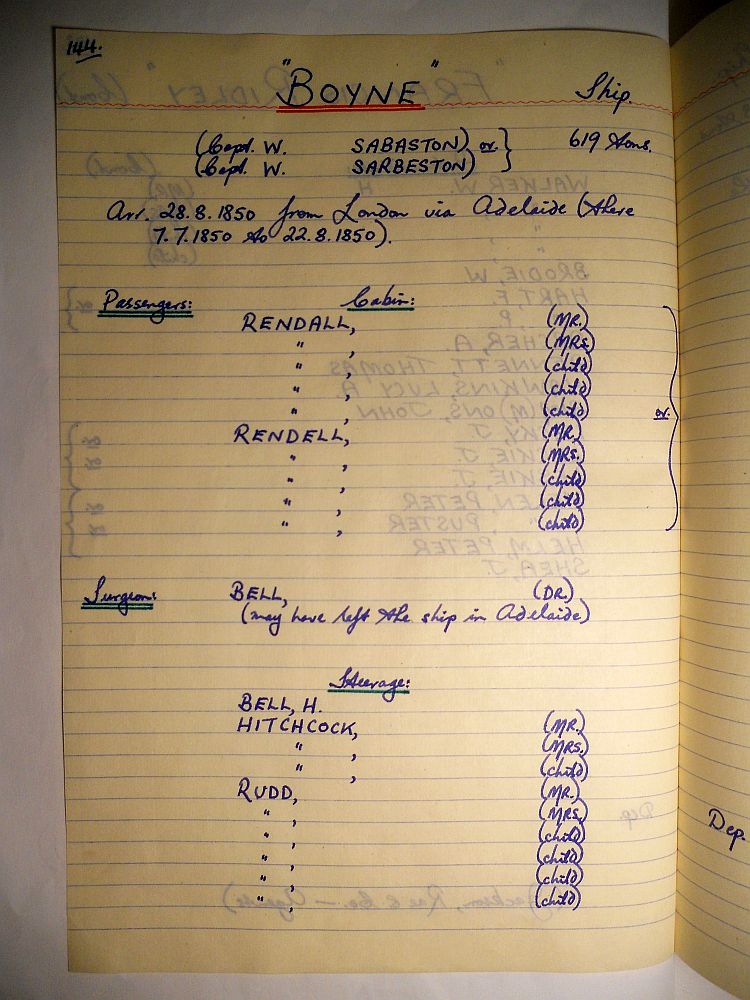 144.
"BOYNE" Ship.
(Capt. W. SABASTON) or } 619 tons.
(Capt. W. SARBESTON)
Arr. 28.8.1850 from London via Adelaide (there
7.7.1850 to 22.8.1850).
Passengers: Cabin:
RENDALL, (MR.)
" , (MRS.)
" , (child)
" , (child)
" , (child) or
RENDELL, (MR.)
" , (MRS.)
" , (child)
" , (child)
" , (child)
Surgeon: BELL, (DR.)
(may have left the ship in Adelaide)
Steerage:
BELL, H.
HITCHCOCK, (MR.)
" , (MRS.)
" , (child)
RUDD, (MR.)
" , (MRS.)
" , (child)
" , (child)
" , (child)
" , (child)
Dep.